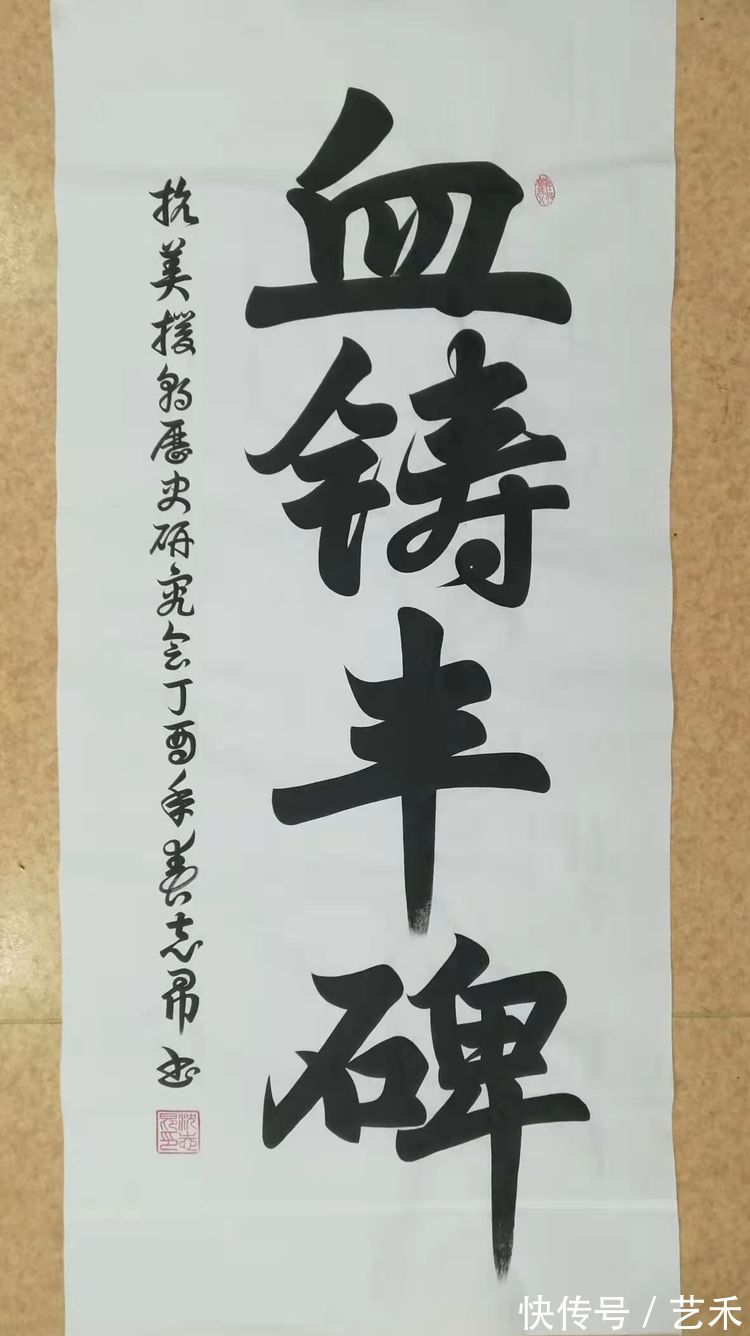 血铸丰碑
抗美援朝历史研究会丁酉年春志昂书
快传号/艺禾